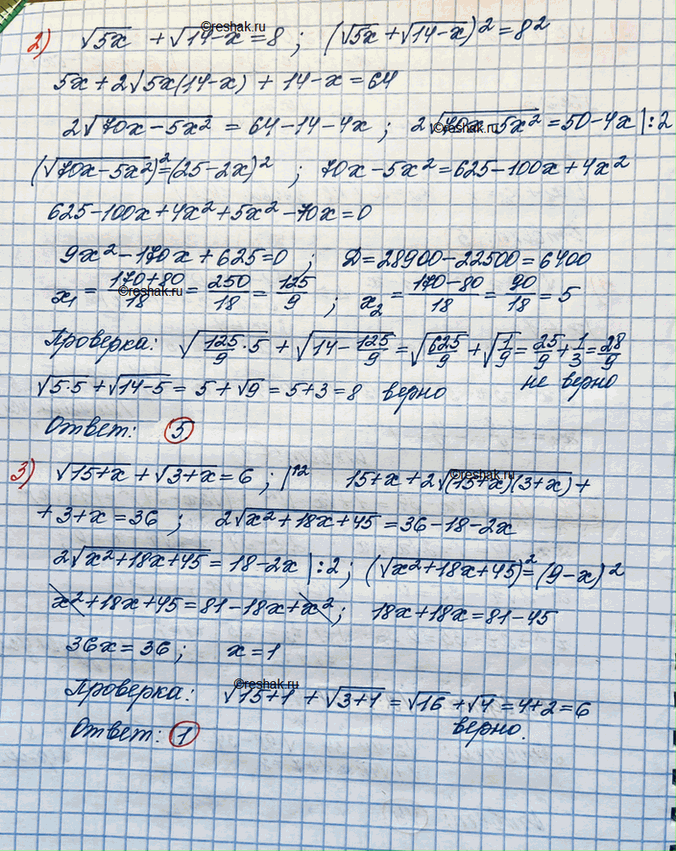 ©reshak.ru
2) √5x + √14-x = 8 ; (√5x + √14-x)² = 8²
5x + 2√5x(14-x) + 14-x = 64
2√70x-5x² = 64-14-4x ; 2√70x-5x² = 50-4x |:2
©reshak.ru
(√70x-5x²)² = (25-2x)² ; 70x-5x² = 625-100x+4x²
625-100x+4x²+5x²-70x=0
9x²-170x+625=0 ; D=28900-22500=6400
x₁ = (170+80)/18 = 250/18 = 125/9 ; x₂ = (170-80)/18 = 90/18 = 5
©reshak.ru
Проверка: √(125/9·5) + √(14-125/9) = √(625/9) + √(1/9) = 25/9 + 1/3 = 28/9
√5·5 + √14-5 = 5+√9 = 5+3=8 верно не верно
Ответ: 5
3) √15+x + √3+x = 6 ; |² 15+x+2√(15+x)(3+x) +
©reshak.ru
+3+x=36 ; 2√x²+18x+45 = 36-18-2x
2√x²+18x+45 = 18-2x |:2 ; (√x²+18x+45)² = (9-x)²
x²+18x+45=81-18x+x² ; 18x+18x=81-45
36x=36 ; x=1
©reshak.ru
Проверка: √15+1 + √3+1 = √16 + √4 = 4+2=6
Ответ: 1 верно.